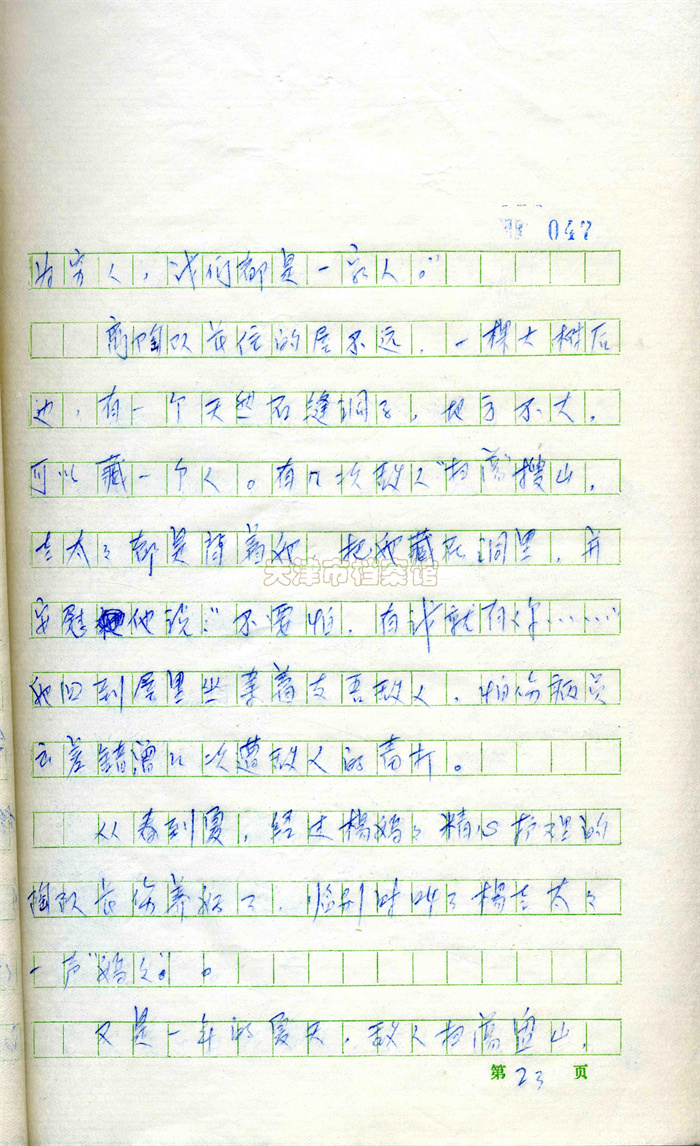 047
为穷人，我们都是一家人。”
离陶队长住的屋不远，一棵大树后
边，有一个天然石缝洞子，地方不大，
可以藏一个人。有几次敌人“扫荡”搜山，
老太太都是背着他，把他藏在洞里，并
安慰他说：“不要怕，有我就有你……”
她回到屋里坐等着支吾敌人，怕伤病员
出差错曾几次遭敌人的毒打。
从春到夏，经过杨妈妈精心护理的
陶队长伤养好了，临别时叫了杨老太太
一声“妈妈”。
又是一年的夏天，敌人扫荡盘山，
第23页
天津市档案馆